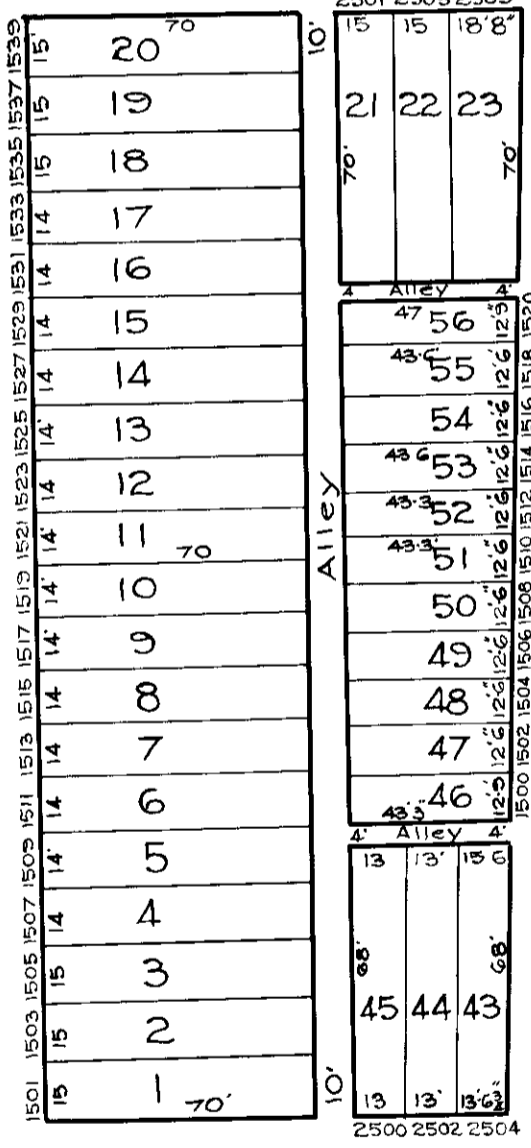 1539 15' 20 70 10'
1537 15 19
1535 15 18
1533 14 17
1531 14 16
1529 14 15
1527 14 14
1525 14' 13
1523 14 12
1521 14' 11 70
1519 14' 10
1517 14' 9
1515 14 8
1513 14 7
1511 14 6
1509 14' 5
1507 14 4
1505 15 3
1503 15 2
1501 15 1 70' 10'
Alley
15 15 18'8"
21 22 23
70' 70'
4 Alley 4'
47 56 12'9" 1520
43-6' 55 12'6 1518
54 12'6" 1516
43 6 53 12'6 1514
43-3 52 12'6" 1512
43-3' 51 12'6" 1510
50 12'6" 1508
49 12'6" 1506
48 12'6" 1504
47 12'6" 1502
43'3" 46 12-9" 1500
4' Alley 4'
13 13'
68' 68'
45 44 43
13 13'
2500 2502 2504